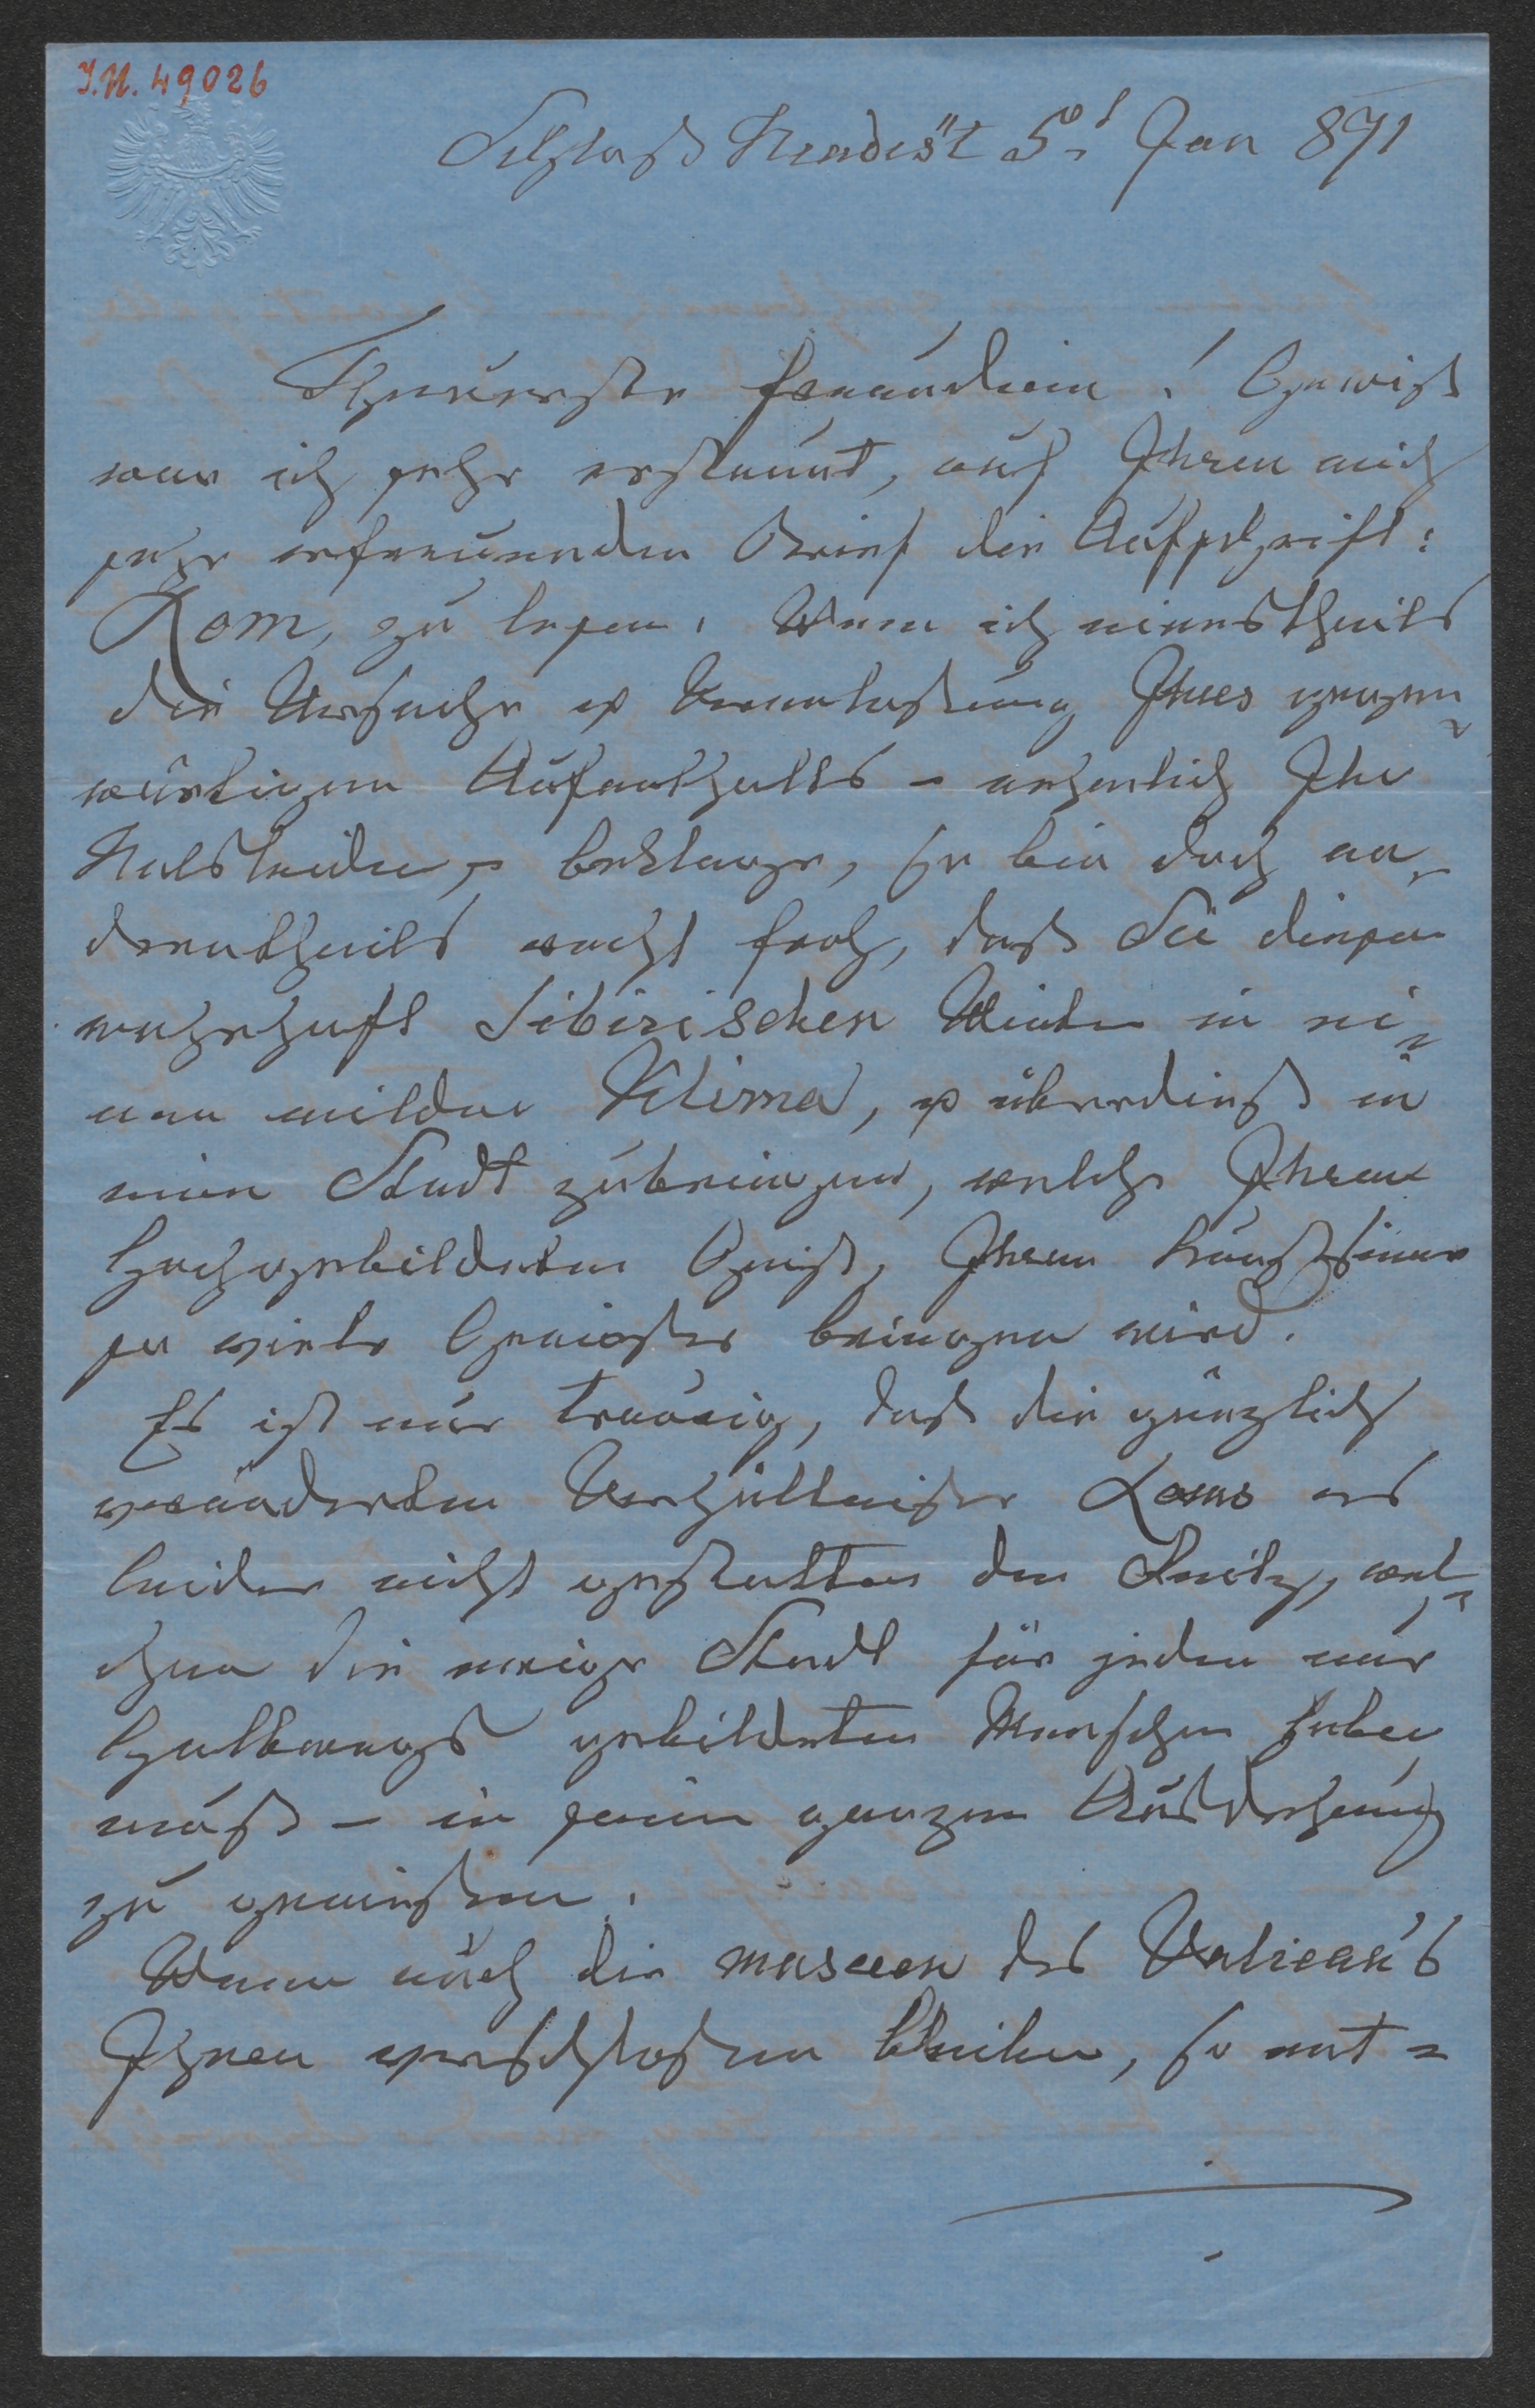 I.N. 49026
Schloß Hradist 5t Jan 871
Theuerste Freundin! Gewiß
war ich sehr erstaunt, auf Ihren mich
sehr erfreuenden Brief die Aufschrift:
Rom, zu lesen. Wenn ich einestheils
die Ursache & Veranlaßung Ihres gegen-
wärtigen Aufenthalts - nehmlich Ihr
Halsleiden, - beklage, so bin doch an-
derntheils recht froh, daß Sie diesen
wahrhaft Sibirischen Winter in ei-
nem milden Klima, & überdieß in
einer Stadt zubringen, welche Ihrem
hochgebildeten Geist, Ihrem Kunstsinne
so viele Genüße bringen wird.
Es ist nur traurig, daß die gänzlich
veränderten Verhältniße Roms es
leider nicht gestatten den Reitz, wel-
chen die ewige Stadt für jeden nur
halbwegs gebildeten Menschen haben
muß - in seiner ganzen Ausdehnung
zu genießen.
Wenn auch die Museen des Vatican's
Ihnen verschloßen bleiben, so ent-